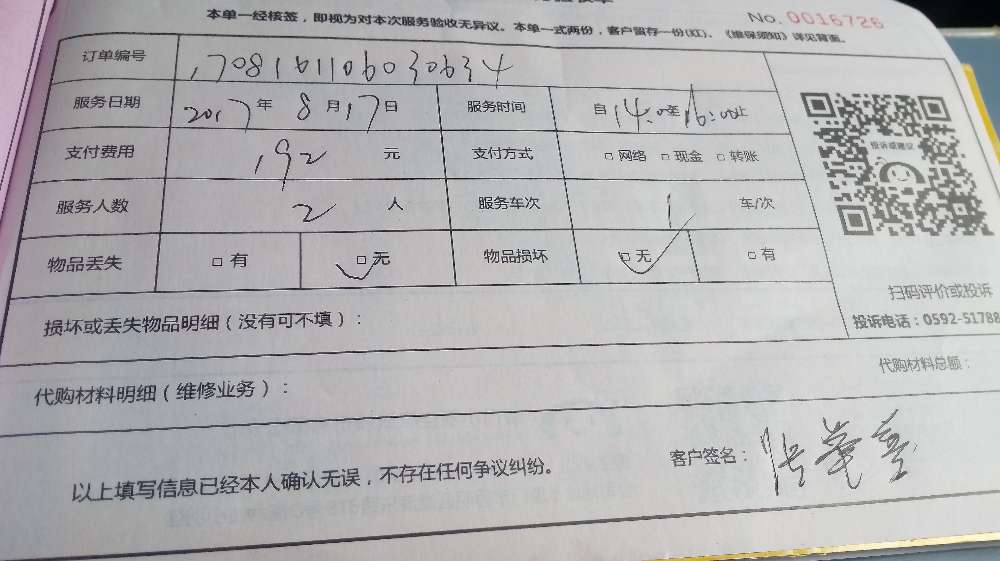 本单一经核签，即视为对本次服务验收无异议。本单一式两份，客户留存一份(红)、《维保须知》详见背面。
No. 0016726
订单编号 1708161106030634
服务日期 2017 年 8 月 17 日 服务时间 自 14:00 至 16:00 止
支付费用 192 元 支付方式 □ 网络 □ 现金 □ 转账
服务人数 2 人 服务车次 1 车/次
物品丢失 □ 有 □ 无 物品损坏 □ 无 □ 有
投诉或建议
扫码评价或投诉
投诉电话：0592-51788
损坏或丢失物品明细（没有可不填）：
代购材料总额：
代购材料明细（维修业务）：
客户签名：
以上填写信息已经本人确认无误，不存在任何争议纠纷。